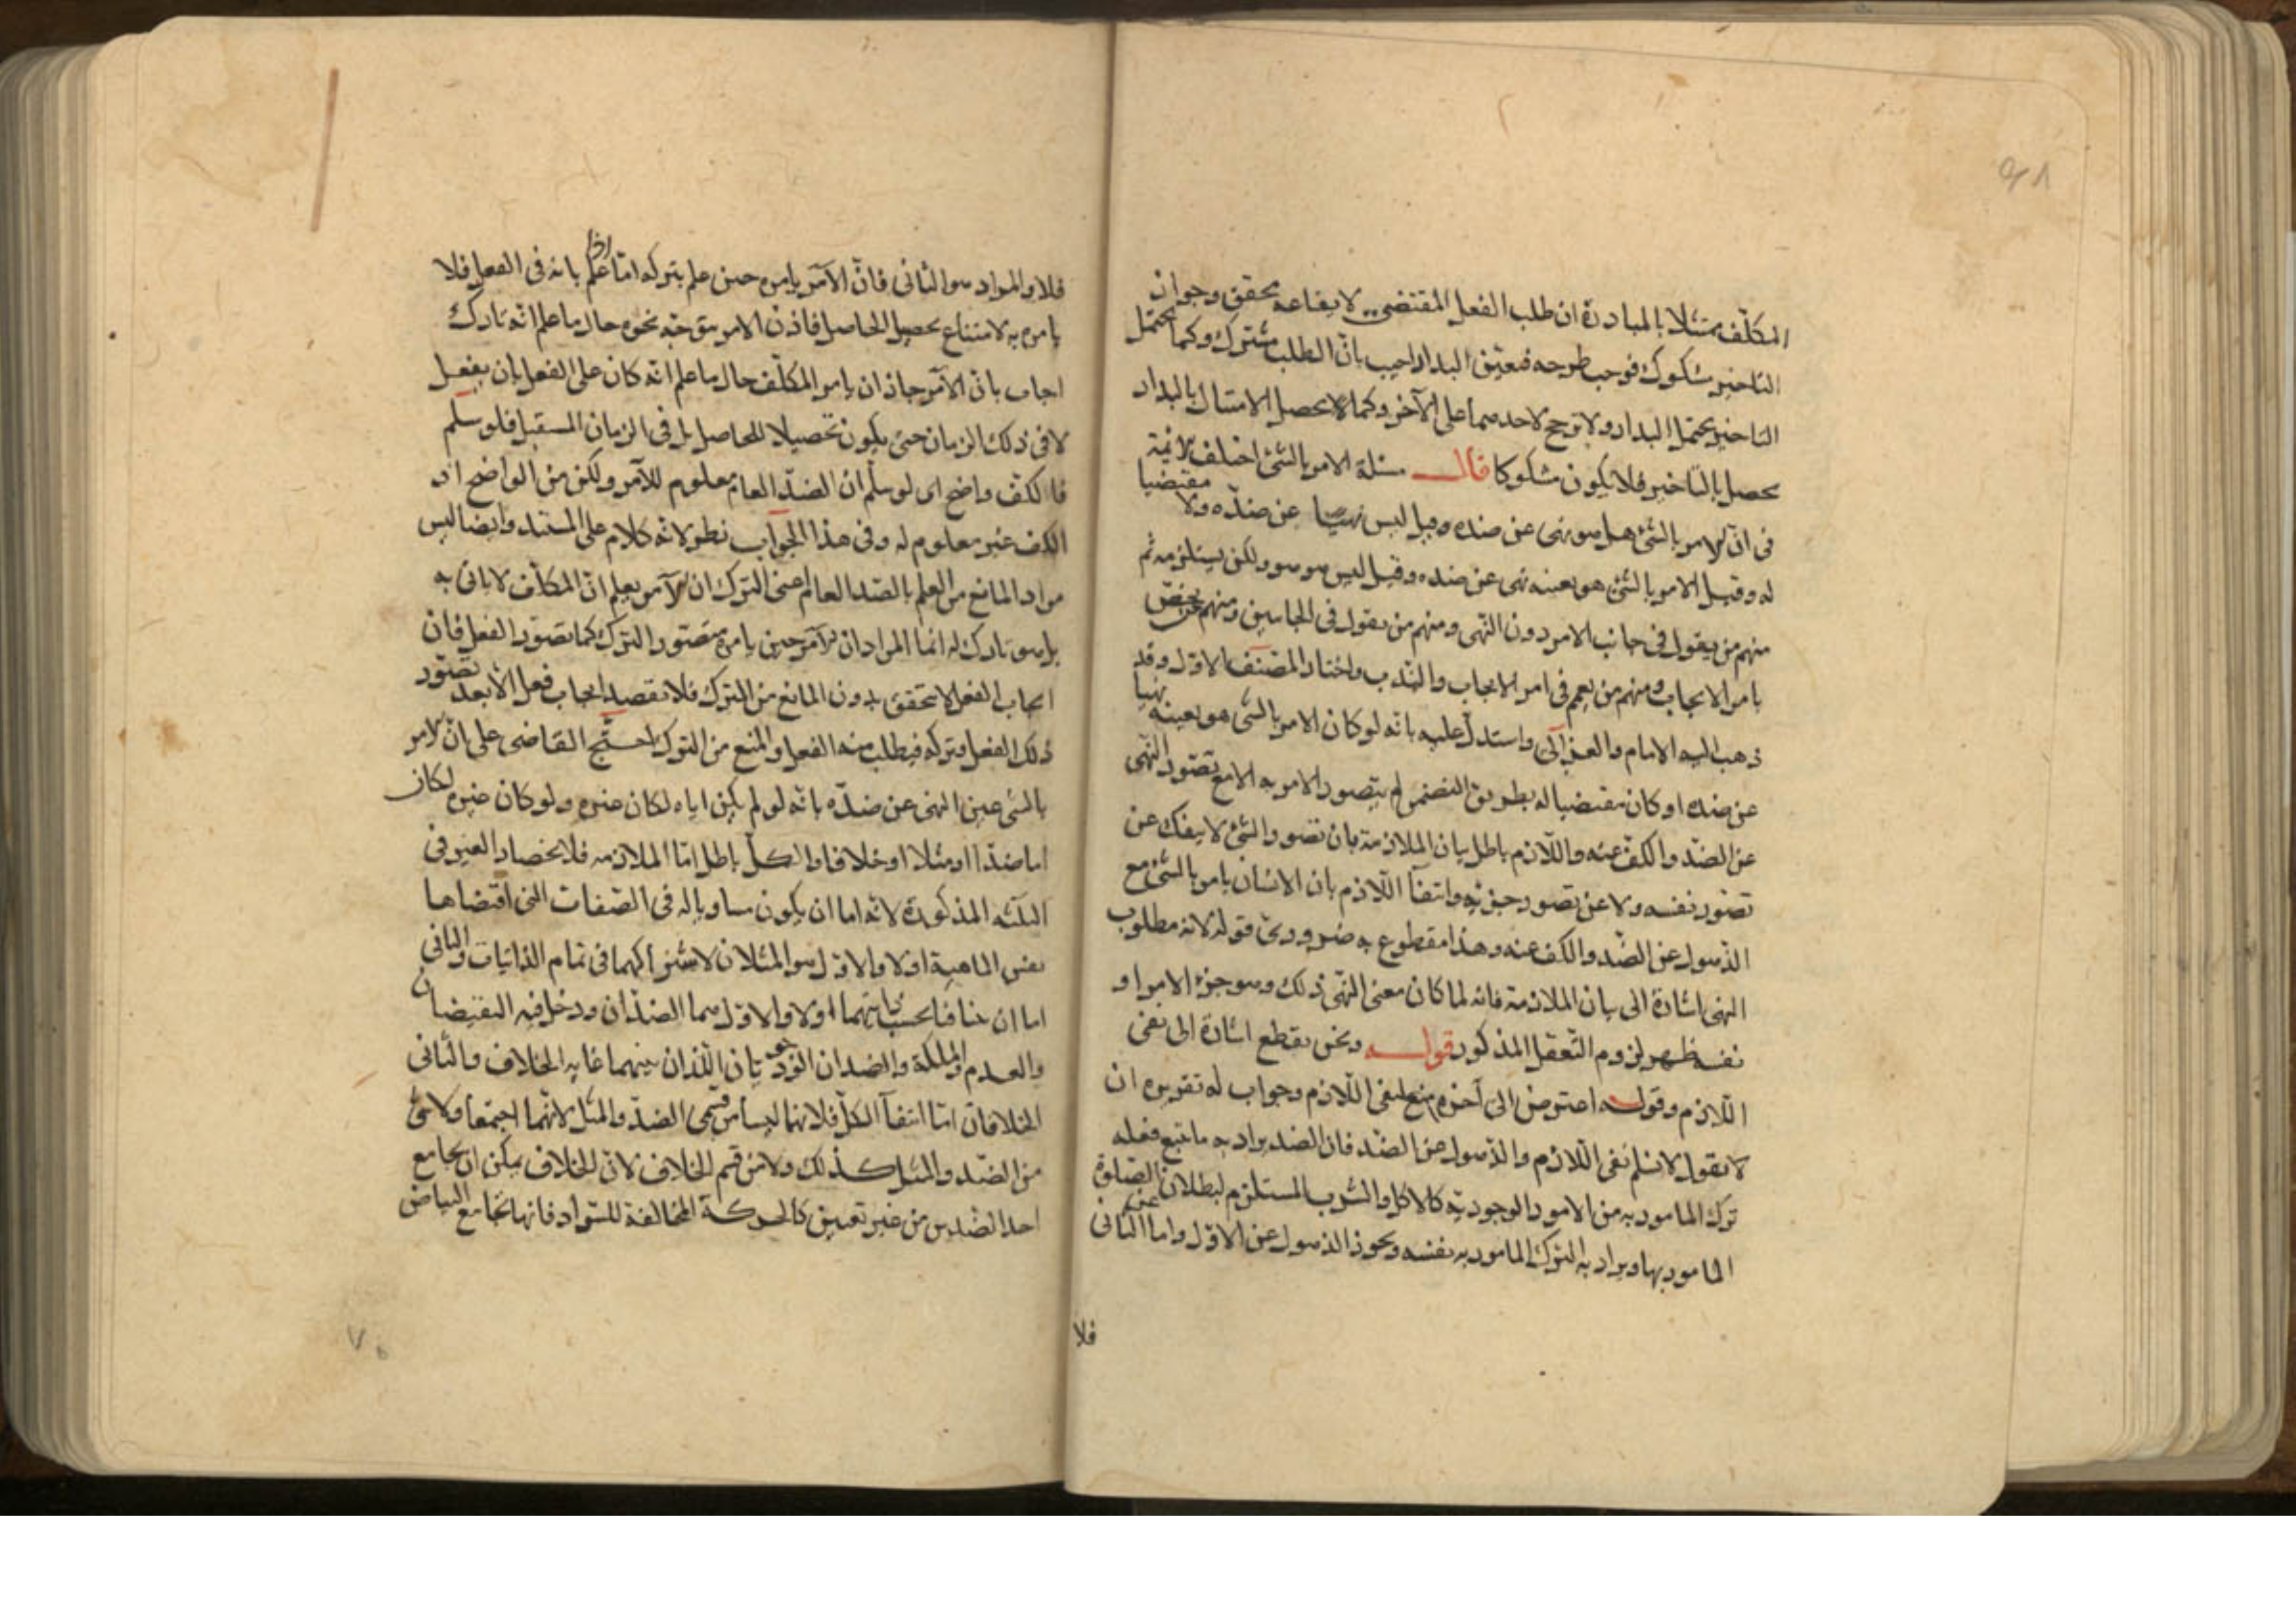 المكلّف ممتثلا بالمبادرة ان طلب الفعل المقتضى لايقاعه محقق وجواز
التاخير مشكوك فوجب طرحه فتعيّن البدار اجيب بانّ الطلب مشترك وكما يحتمل
التاخير يحتمل البدار ولا ترجح لاحدهما على الآخر وكما لا يحصل الامتثال بالبدار
يحصل بالتاخير فلا يكون مشكوكا قال مسئلة الامر بالشئ اختلف الائمة
فى انّ الامر بالشئ هل هو نهى عن ضده وقيل ليس نهيا عن ضدّه ولا مقتضيا
له وقيل الامر بالشئ هو بعينه نهى عن ضده وقيل ليس هو هو ولكن يستلزمه ثم
منهم من يقول فى جانب الامر دون النّهى ومنهم من يقول فى الجانبين ومنهم من يخصّ
بامر الايجاب ومنهم من يعمم فى امر الايجاب والنّدب واختار المصنف الاوّل وقد
ذهب اليه الامام والغزالى واستدلّ عليه بانّه لو كان الامر بالشى هو بعينه نهيا
عن ضده او كان مقتضيا له بطريق التضمن لم يتصور الامر به الا مع تصوّر النّهى
عن الضدّ والكفّ عنه واللّازم باطل بيان الملازمة بان تصور الشئ لا ينفك عن
تصوّر نفسه ولا عن تصور جزئه وانتفآ اللّازم بان الانسان يامر بالشئ مع
الذهول عن الضّد والكف عنه وهذا مقطوع به ضرورى قوله لانه مطلوب
النهى اشارة الى بيان الملازمة فانه لما كان معنى النّهى ذلك وهو جزء الامر او
نفسه ظهر لزوم التّعقل المذكور قوله ونحن نقطع اشارة الى نفى
اللّازم وقوله اعترض الى آخره منع لنفى اللّازم وجواب له تقريره ان
لا نقول لا نسلم نفى اللّازم والذّهول عن الضّد فان الضد يراد به ما يتبع فعله
ترك المامور به من الامور الوجوديّة كالاكل والشرب المستلزم لبطلان الصّلوة
المامور بها ويراد به التّرك المامور به نفسه ويجوز الذهول عن الاوّل واما الثّانى
فلا
فلا والمراد هو الثّانى فانّ الآمر يامره حين علم بتركه امّا اذا علم بانه فى الفعل فلا
يامره به لامتناع تحصيل الحاصل فاذن الامر متوجّه نحوه حال ما علم انّه تارك
اجاب بانّ الآمر جاز ان يامر المكلّف حال ما علم انّه كان على الفعل بان يفعل
لا فى ذلك الزمان حتى يكون تحصيلا للحاصل بل فى الزمان المستقبل فلو سلّم
فالكفّ واضح اى لو سلّم ان الضدّ العام معلوم للآمر ولكن من الواضح ان
الكف غير معلوم له وفى هذا الجواب نظر لانّه كلام على المستند وايضا ليس
مراد المانع من العلم بالضد العام اعنى التّرك ان الآمر يعلم انّ المكلّف لا ياتى به
بل هو تارك له انما المراد ان الآمر حين يامره يتصور التّرك كما يتصوّر الفعل فان
ايجاب الفعل لا يتحقق بدون المانع من التّرك فلا يقصد ايجاب فعل الّا بعد تصوّر
ذلك الفعل وتركه فيطلب منه الفعل والمنع من التّرك احتجّ القاضى على انّ الامر
بالشى عين النهى عن ضدّه بانّه لو لم يكن اياه لكان غيره ولو كان غيره لكان
اما ضدّا او مثلا او خلافا والكلّ باطل امّا الملازمه فلانحصار الغير فى
الثلثه المذكورة لانّه اما ان يكون مساويا له فى الصّفات التى اقتضاها
نفس الماهية اولا والاوّل هو المثلان لاشتراكهما فى تمام الذاتيات والثانى
اما ان تنافيا بحسب ذاتيهما اولا والاوّل هما الضدّان ودخل فيه النقيضان
والعدم والملكة والضدان الوجوديّان اللّذان بينهما غاية الخلاف والثّانى
الخلافان امّا انتفآ الكلّ فلانهما ليسا من قسمى الضدّ والمثل لانّهما اجتمعا ولا شئ
من الضّد والمثل كذلك ولا من قسم الخلاف لانّ الخلاف يمكن ان يجامع
احد الضّدين من غير تعيين كالحركة المخالفة للسّواد فانها تجامع البياض